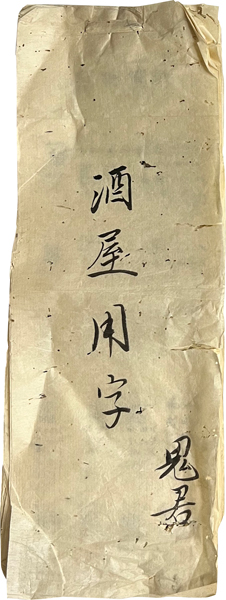 酒屋用字
鬼君